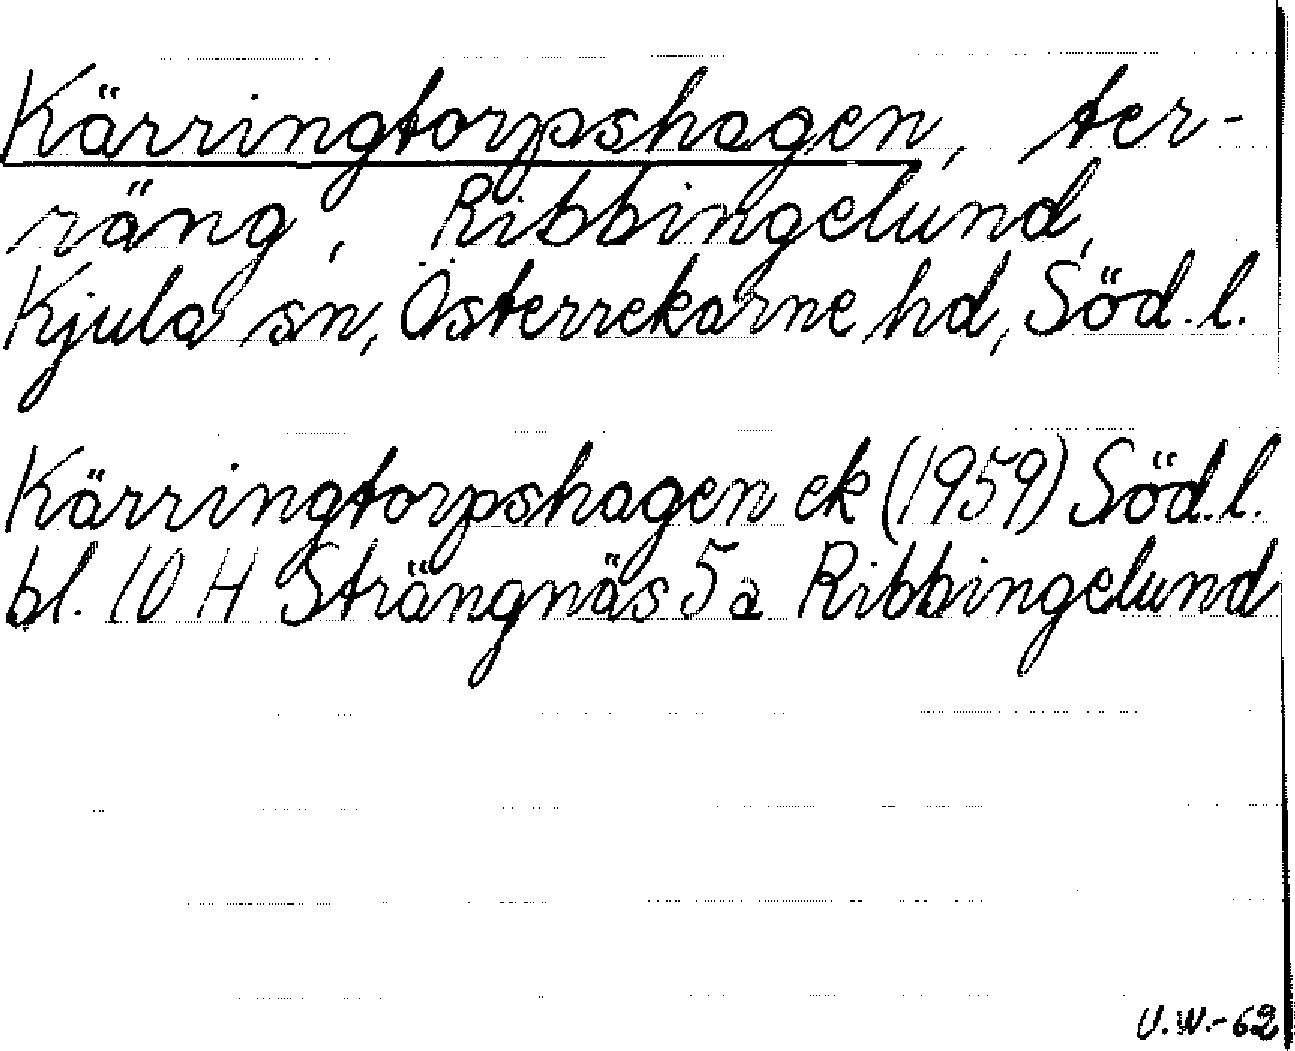 Kärringtorpshagen, ter-
räng, Ribbingelund,
Kjula sn, Österrekarne hd, Söd.l.
Kärringtorpshagen ek (1959) Söd.l.
bl. 10 H Strängnäs 5 a Ribbingelund
U.W.-62